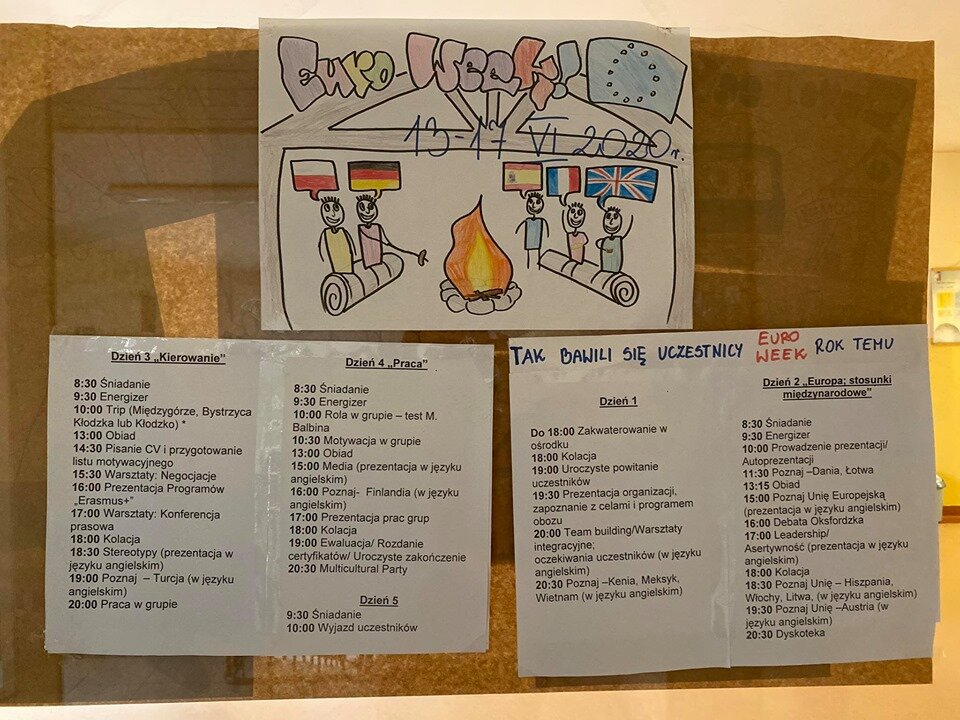 Euro-Week!
13-17 VI 2020r.
Dzień 3 „Kierowanie"
8:30 Śniadanie
9:30 Energizer
10:00 Trip (Międzygórze, Bystrzyca
Kłodzka lub Kłodzko) *
13:00 Obiad
14:30 Pisanie CV i przygotowanie
listu motywacyjnego
15:30 Warsztaty: Negocjacje
16:00 Prezentacja Programów
„Erasmus+"
17:00 Warsztaty: Konferencja
prasowa
18:00 Kolacja
18:30 Stereotypy (prezentacja w
języku angielskim)
19:00 Poznaj – Turcja (w języku
angielskim)
20:00 Praca w grupie
Dzień 4 „Praca"
8:30 Śniadanie
9:30 Energizer
10:00 Rola w grupie – test M.
Balbina
10:30 Motywacja w grupie
13:00 Obiad
15:00 Media (prezentacja w języku
angielskim)
16:00 Poznaj- Finlandia (w języku
angielskim)
17:00 Prezentacja prac grup
18:00 Kolacja
19:00 Ewaluacja/ Rozdanie
certyfikatów/ Uroczyste zakończenie
20:30 Multicultural Party
Dzień 5
9:30 Śniadanie
10:00 Wyjazd uczestników
TAK BAWILI SIĘ UCZESTNICY EURO WEEK ROK TEMU
Dzień 1
Do 18:00 Zakwaterowanie w
ośrodku
18:00 Kolacja
19:00 Uroczyste powitanie
uczestników
19:30 Prezentacja organizacji,
zapoznanie z celami i programem
obozu
20:00 Team building/Warsztaty
integracyjne;
oczekiwania uczestników (w języku
angielskim)
20:30 Poznaj –Kenia, Meksyk,
Wietnam (w języku angielskim)
Dzień 2 „Europa; stosunki
międzynarodowe"
8:30 Śniadanie
9:30 Energizer
10:00 Prowadzenie prezentacji/
Autoprezentacji
11:30 Poznaj –Dania, Łotwa
13:15 Obiad
15:00 Poznaj Unię Europejską
(prezentacja w języku angielskim)
16:00 Debata Oksfordzka
17:00 Leadership/
Asertywność (prezentacja w języku
angielskim)
18:00 Kolacja
18:30 Poznaj Unię – Hiszpania,
Włochy, Litwa, (w języku angielskim)
19:30 Poznaj Unię –Austria (w
języku angielskim)
20:30 Dyskoteka